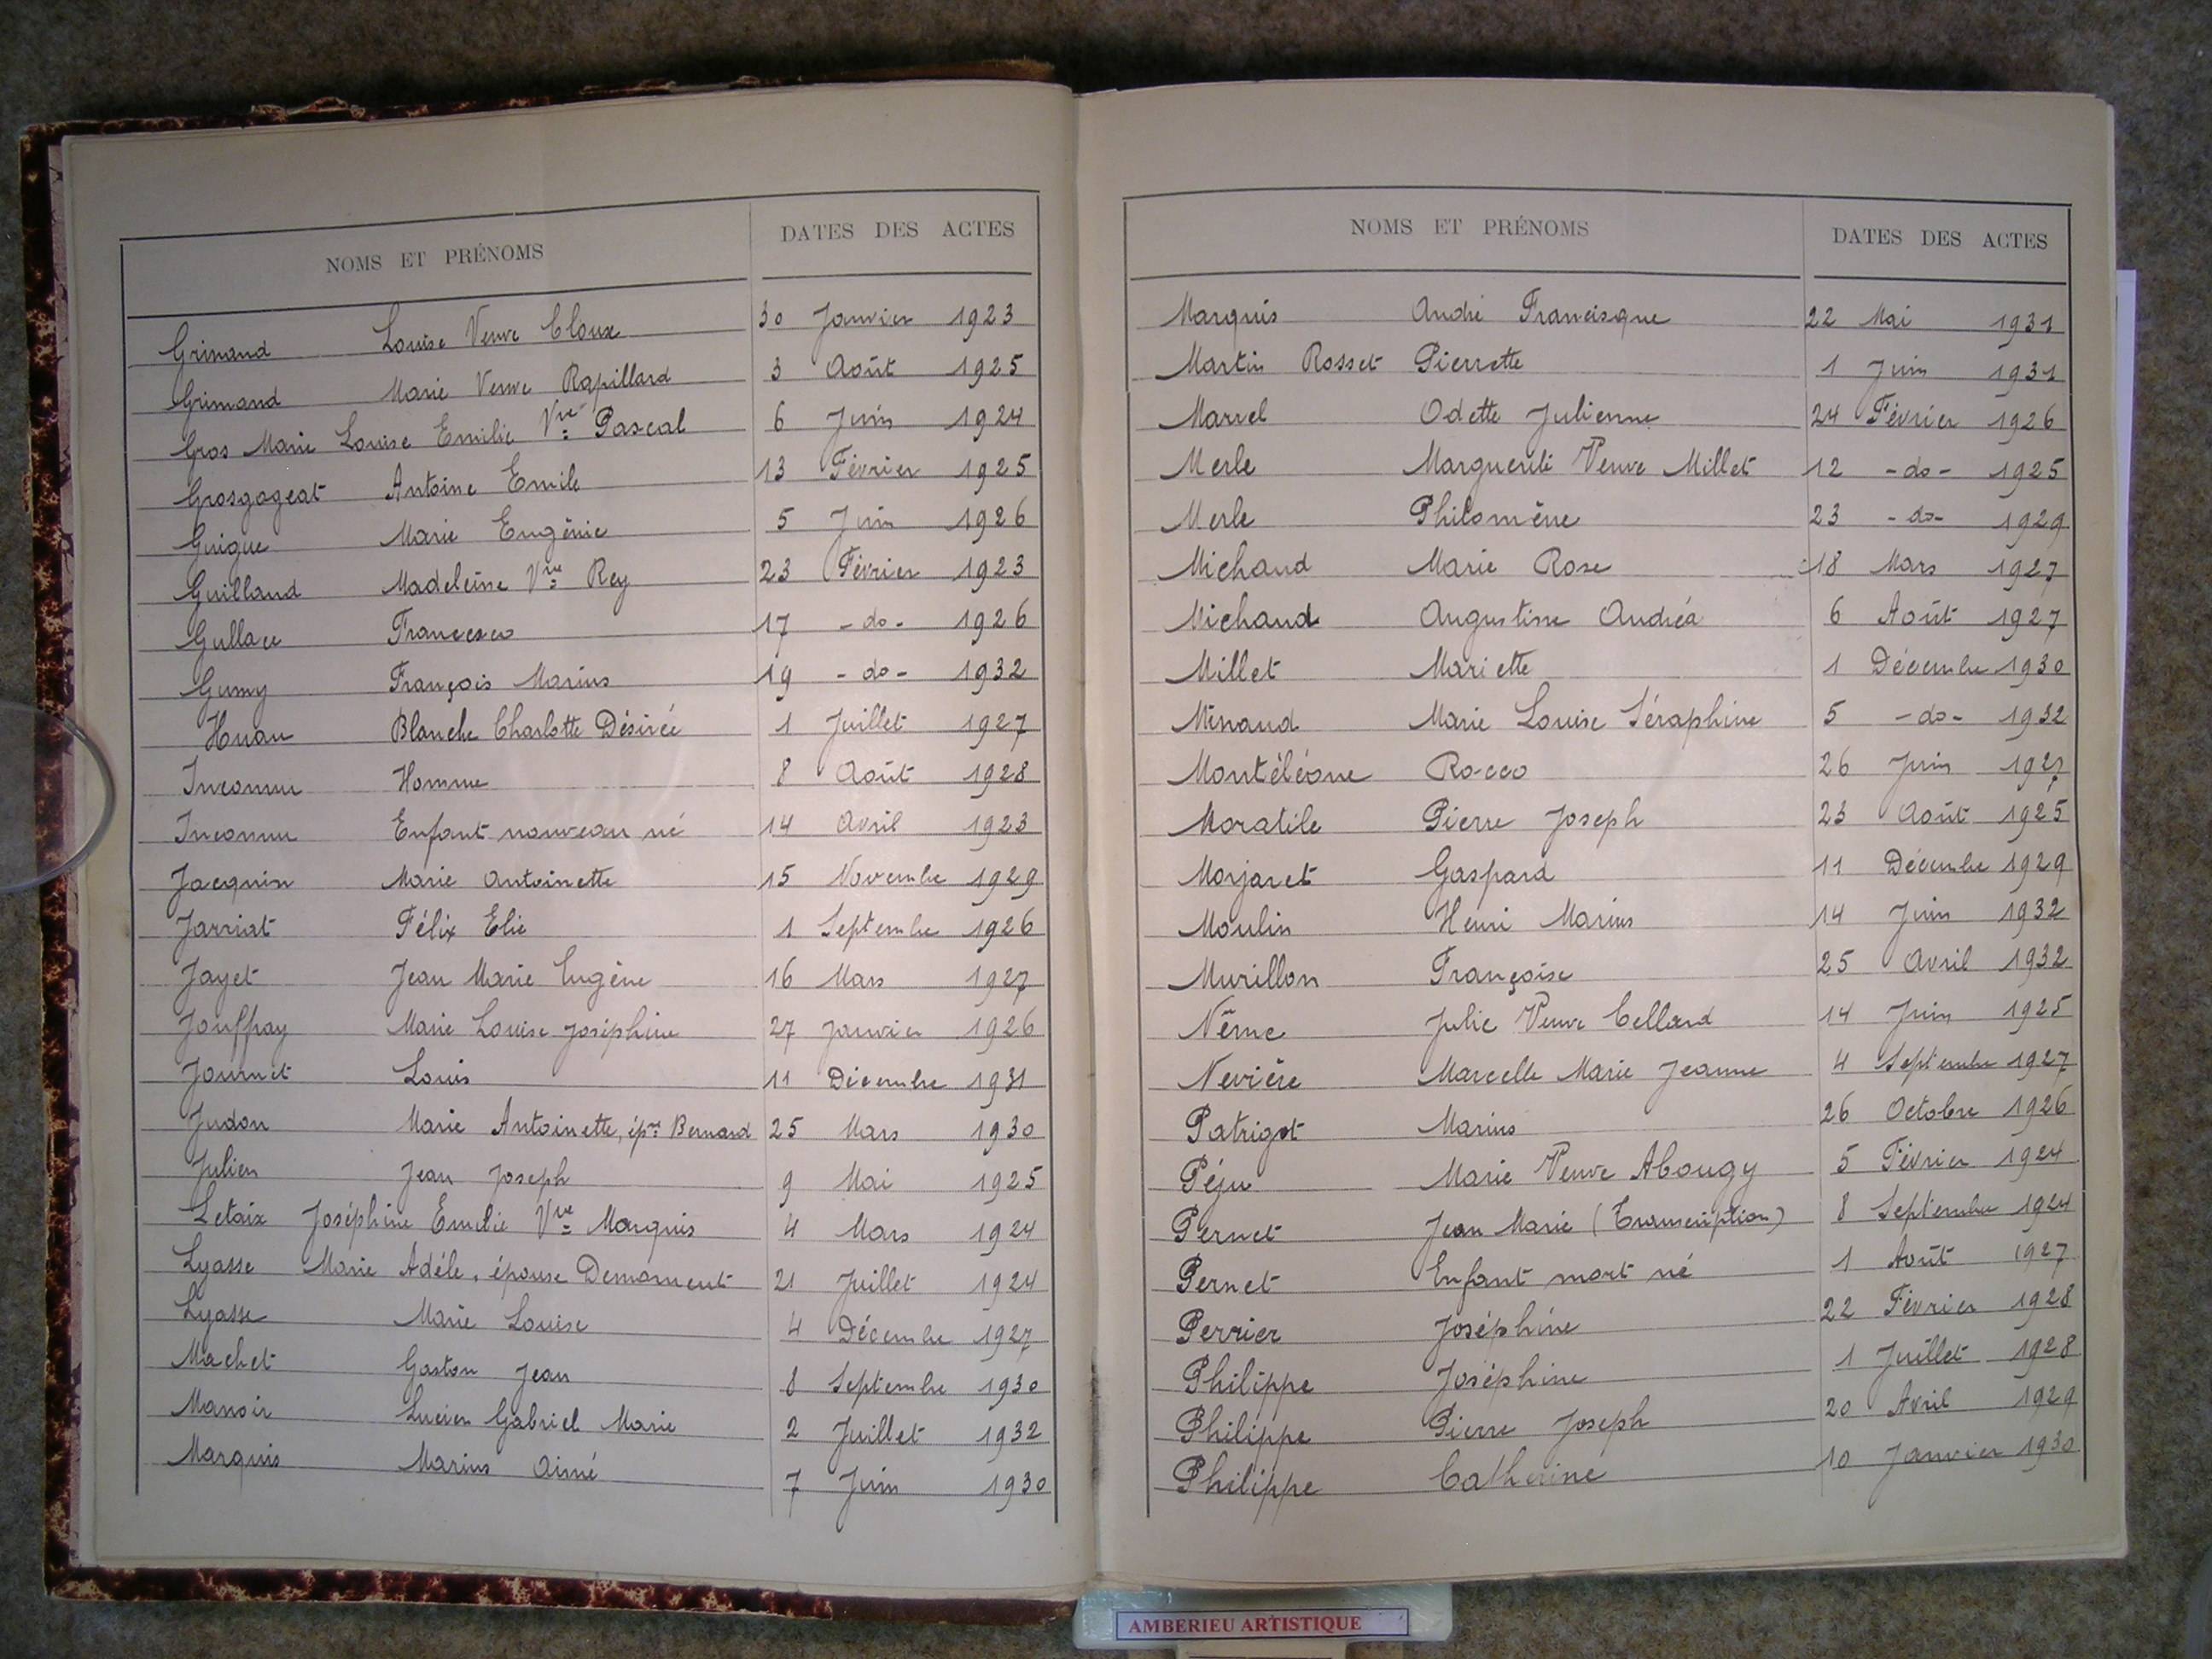 NOMS ET PRÉNOMS DATES DES ACTES
Grimand Louise Veuve Cloux 30 Janvier 1923
Grimand Marie Veuve Rapillard 3 Août 1925
Gros Marie Louise Emilie Vve Pascal 6 Juin 1924
Grosgogeat Antoine Emile 13 Février 1925
Guigue Marie Eugénie 5 Juin 1926
Guilland Madeleine Vve Rey 23 Février 1923
Gullace Francesco 17 -do- 1926
Gumy François Marius 19 -do- 1932
Huau Blanche Charlotte Désirée 1 Juillet 1927
Inconnu Homme 8 Août 1928
Inconnu Enfant nouveau né 14 Avril 1923
Jacquin Marie Antoinette 15 Novembre 1929
Jarriat Félix Elie 1 Septembre 1926
Jayet Jean Marie Eugène 16 Mars 1927
Jouffray Marie Louise Joséphine 27 Janvier 1926
Journet Louis 11 Décembre 1931
Judon Marie Antoinette, épse Bernard 25 Mars 1930
Julien Jean Joseph 9 Mai 1925
Letaix Joséphine Emelie Vve Marquis 4 Mars 1924
Lyasse Marie Adéle, épouse Demornent 21 Juillet 1924
Lyasse Marie Louise 4 Décembre 1927
Machet Gaston Jean 8 Septembre 1930
Manoir Lucien Gabriel Marie 2 Juillet 1932
Marquis Marius Aimé 7 Juin 1930
NOMS ET PRÉNOMS DATES DES ACTES
Marquis André Francisque 22 Mai 1931
Martin Rosset Pierrette 1 Juin 1931
Marvel Odette Julienne 24 Février 1926
Merle Marguerite Veuve Millet 12 -do- 1925
Merle Philomène 23 -do- 1929
Michaud Marie Rose 18 Mars 1927
Michaud Augustine Andréa 6 Août 1927
Millet Mariette 1 Décembre 1930
Minaud Marie Louise Séraphine 5 -do- 1932
Montéléone Rocco 26 Juin 1927
Moratile Pierre Joseph 23 Août 1925
Morjaret Gaspard 11 Décembre 1929
Moulin Henri Marius 14 Juin 1932
Murillon Françoise 25 Avril 1932
Nême Julie Veuve Cellard 14 Juin 1925
Nevière Marcelle Marie Jeanne 4 Septembre 1927
Patrigot Marius 26 Octobre 1926
Péju Marie Veuve Abougy 5 Février 1924
Pernet Jean Marie (Transcription) 8 Septembre 1924
Pernet Enfant mort né 1 Août 1927
Perrier Joséphine 22 Février 1928
Philippe Joséphine 1 Juillet 1928
Philippe Pierre Joseph 20 Avril 1929
Philippe Catherine 10 Janvier 1930
AMBERIEU ARTISTIQUE